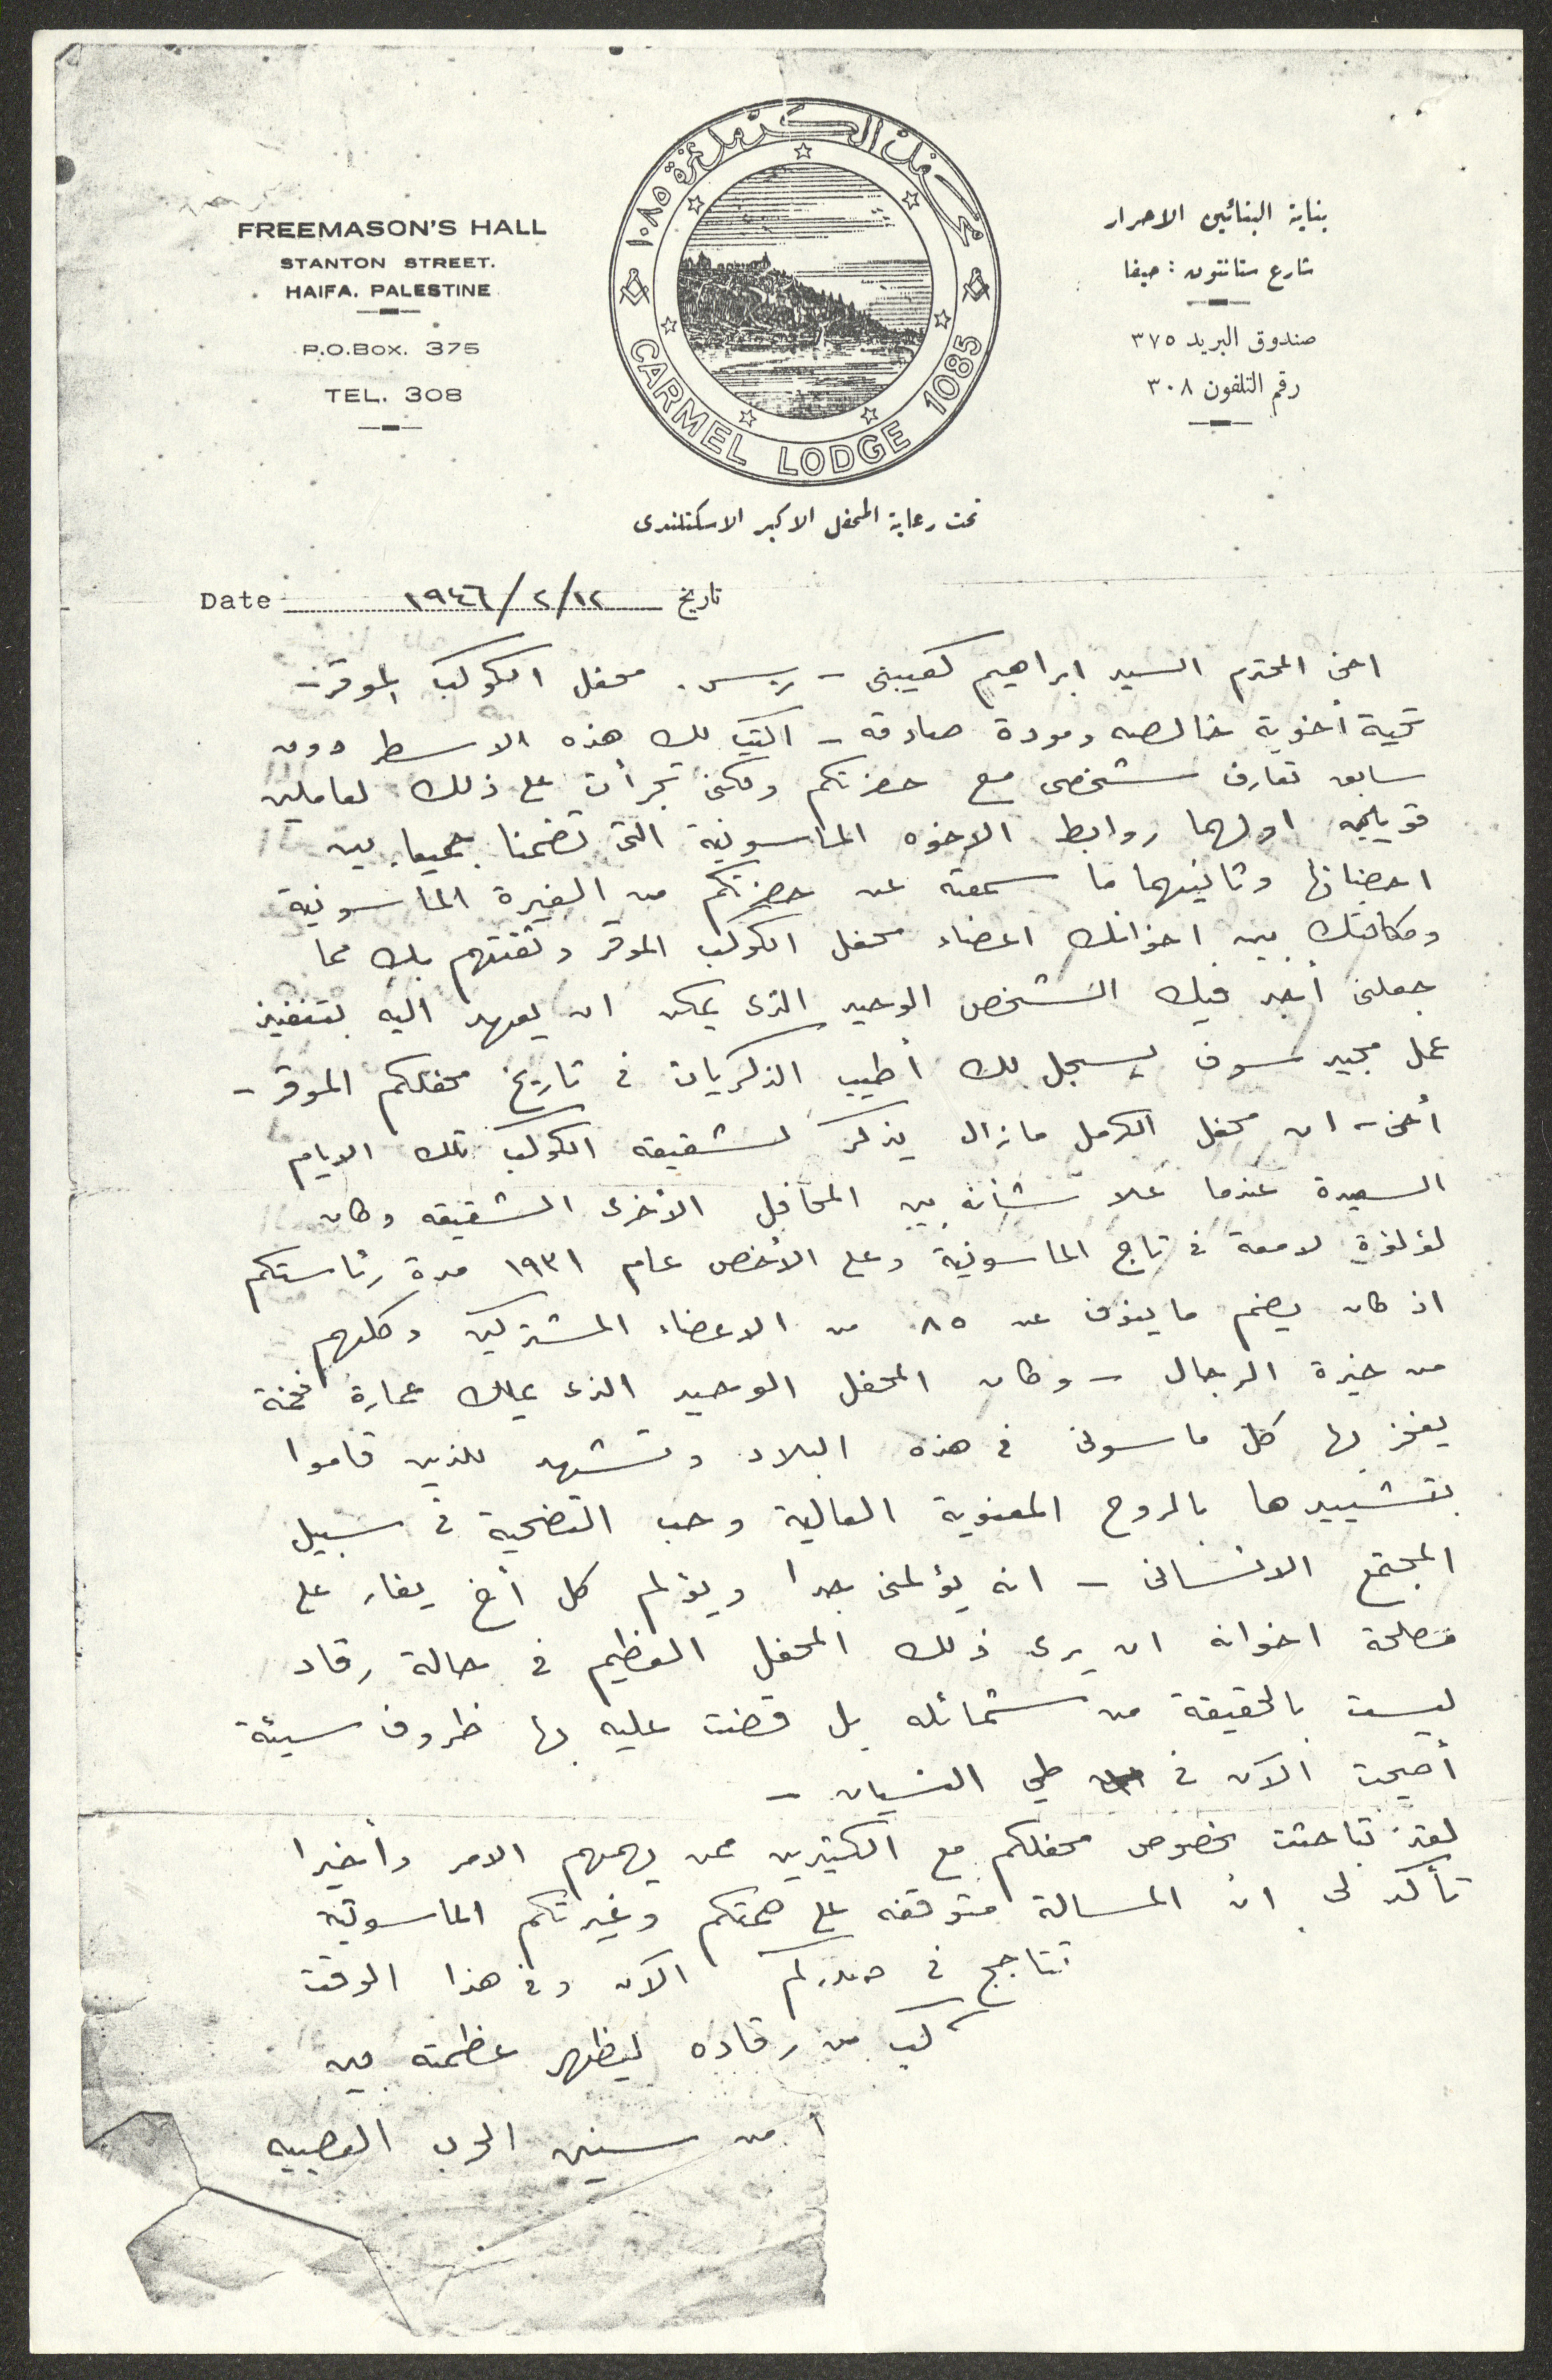 محفل الكرمل نمرة ١٠٨٥
CARMEL LODGE 1085
FREEMASON'S HALL
STANTON STREET.
HAIFA. PALESTINE
P.O.Box. 375
TEL. 308
بناية البنائين الاحرار
شارع ستانتون : حيفا
صندوق البريد ٣٧٥
رقم التلفون ٣٠٨
تحت رعاية المحفل الاكبر الاسكتلندى
Date ١٩٤٦/٢/١٢ تاريخ
اخى المحترم السيد ابراهيم كعيبنى - رئيس محفل الكوكب الموقر -
تحية أخوية خالصه ومودة صادقه - اكتب لك هذه الاسطر دون
سابق تعارف شخصى مع حضرتكم ولكنى تجرأت على ذلك لعاملين
قويين اولهما روابط الاخوه الماسونية التى تضمنا جميعا بين
احضانها وثانيهما ما سمعته عن حضرتكم من الغيرة الماسونية
ومكانتك بين اخوانك اعضاء محفل الكوكب الموقر وثقتهم بك مما
جعلنى أجد فيك الشخص الوحيد الذى يمكن ان يعهد اليه بتنفيذ
عمل مجيد سوف يسجل لك أطيب الذكريات فى تاريخ محفلكم الموقر -
أخى - ان محفل الكرمل مازال يذكر لشقيقه الكوكب تلك الايام
السعيدة عندما علا شأنه بين المحافل الأخرى الشقيقه وكان
لؤلؤة لامعة فى تاج الماسونية وعلى الأخص عام ١٩٣١ مدة رئاستكم
اذ كان يضم ما ينوف عن ٨٥ من الاعضاء المشتركين وكلهم
من خيرة الرجال - وكان المحفل الوحيد الذى يملك عمارة فخمة
يفخر بها كل ماسونى فى هذه البلاد وتشهد للذين قاموا
بتشييدها بالروح المعنوية العالية وحب التضحية فى سبيل
المجتمع الانسانى - انه يؤلمنى جدا ويؤلم كل أخ يغار على
مصلحة اخوانه ان يرى ذلك المحفل العظيم فى حالة رقاد
ليست بالحقيقة من شمائله بل قضت عليه بها ظروف سيئة
أصبحت الآن فى طي النسيان -
لقد تباحثت بخصوص محفلكم مع الكثيرين ممن يهمهم الامر وأخيرا
تأكد لى ان المسالة متوقفه على همتكم وغيرتكم الماسونية
تتاجج فى صدركم الآن وفى هذا الوقت
كب من رقاده ليظهر عظمته بين
من سنين الحرب العصيبه